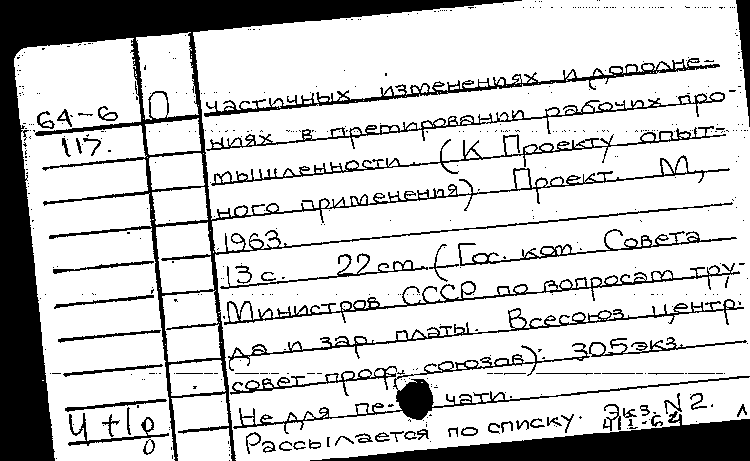 64-6 П частичных изменениях и дополне-
117. ниях в премировании рабочих про-
мышленности. (К Проекту опыт-
ного применения). Проект. М,
1963.
13 с. 22 cm. (Гос. ком. Совета
Министров СССР по вопросам тру-
да и зар. платы. Всесоюз. центр.
совет проф. союзов). 305 экз.
Не для пе- чати.
Рассылается по списку. Экз. N 2.